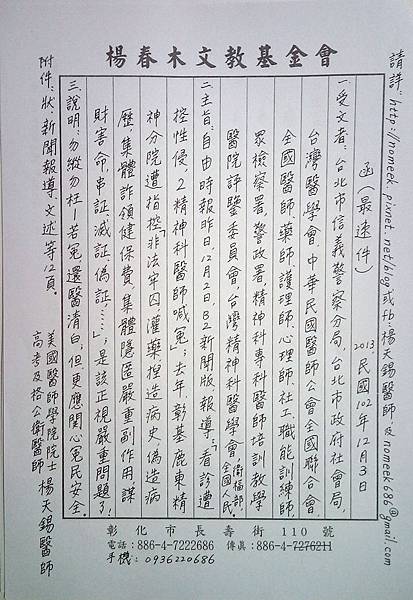 楊春木文教基金會
請詳：http://nomeek.pixnet.net/blog或fb：楊天錫醫師及nomeek686@gmail.com
函（最速件）
2013
民國102年12月3日
一、受文者：台北市信義警察分局、台北市政府社會局、
台灣醫學會、中華民國醫師公會全國聯合會
全國醫師、藥師、護理師、心理師、社工、職能訓練師
眾檢察署、警政署、精神科專科醫師培訓教學
醫院評鑒委員會、台灣精神科醫學會、衛福部、全國人民。
二、主旨：自由時報昨日,12月2日,B2新聞版報導：「看診遭
控性侵，2精神科醫師喊冤」；去年,彰基鹿東精
神分院遭指控：「非法牢囚、灌藥、捏造病史、偽造病
歷，集體詐領健保費、集體隱匿嚴重副作用謀
財害命,串証、滅証、偽証……」；是該正視嚴重問題了。
三、說明：勿縱勿枉－若冤,還醫清白，但,更應關心冤民安全。
附件：狀、新聞報導、文述等12頁。
美國醫師學院院士
高考及格公衛醫師
楊天錫醫師
彰化市長壽街110號
電話：886-4-7222686 傳真：886-4-7276211
手機：0936220686